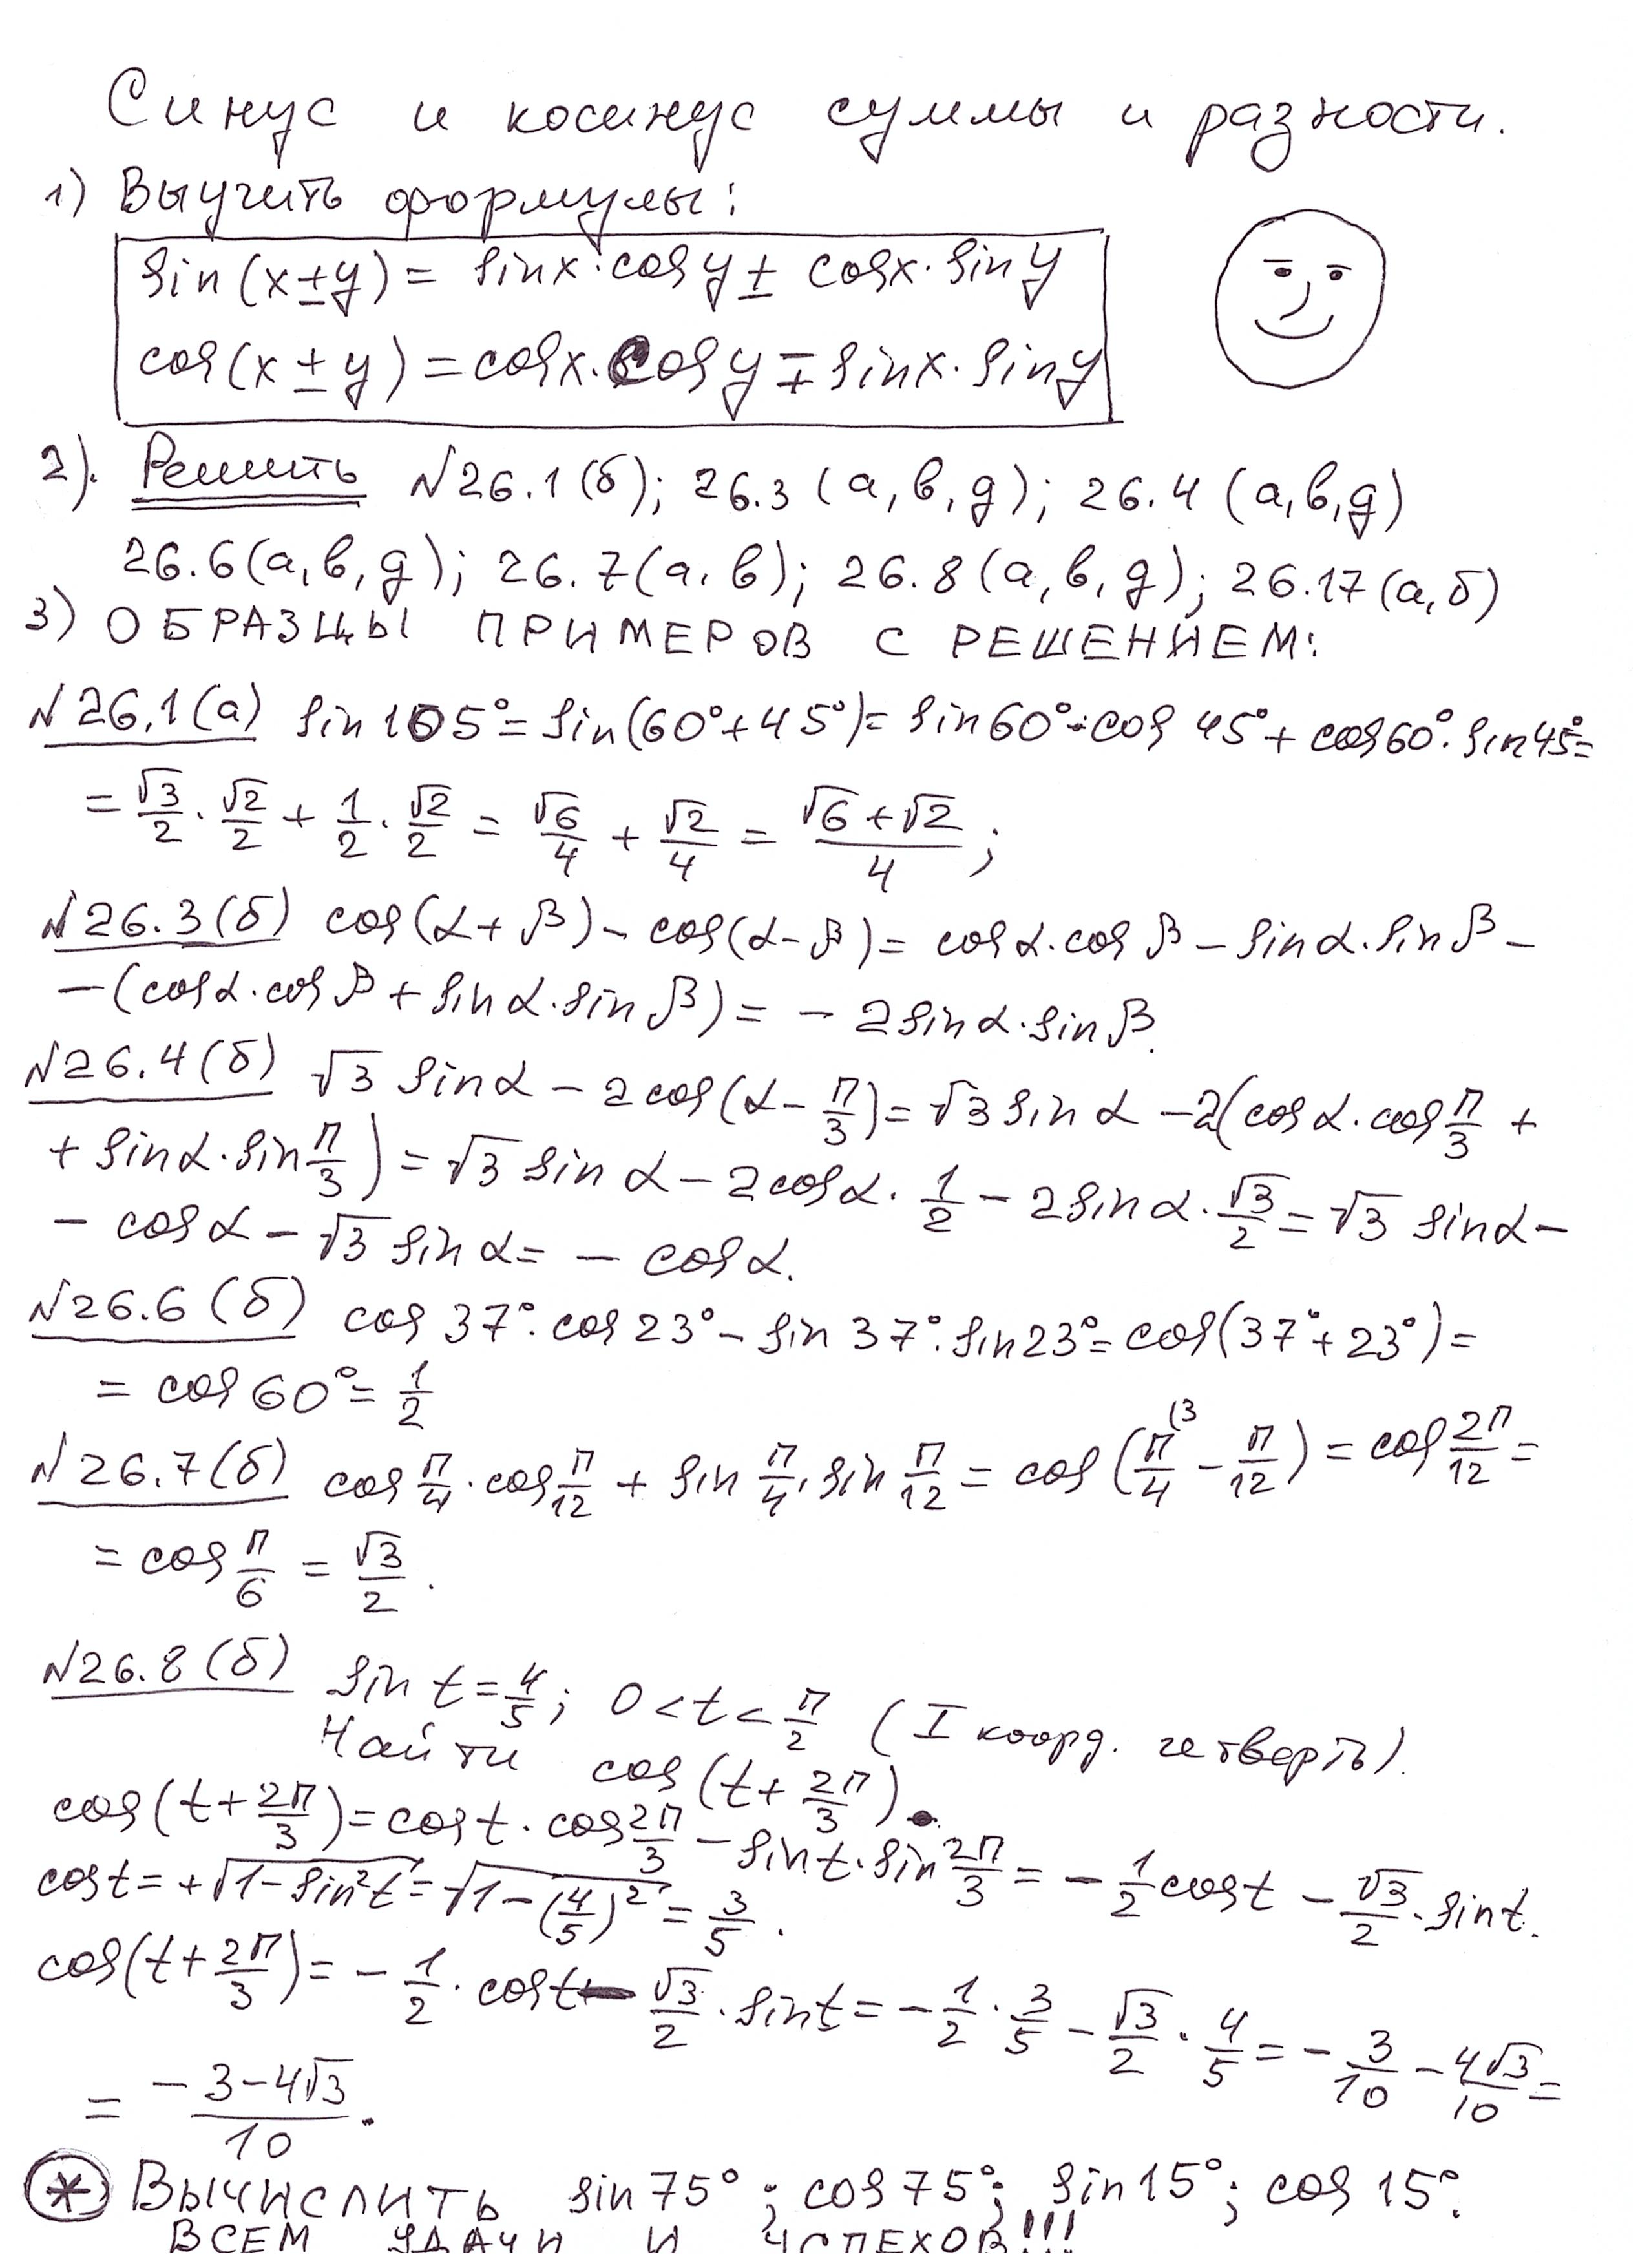 Синус и косинус суммы и разности.
1) Выучить формулы:
sin(x±y) = sinx·cosy ± cosx·siny
cos(x±y) = cosx·cosy ∓ sinx·siny
2). Решить №26.1(б); 26.3(а,в,г); 26.4(а,в,г)
26.6(а,в,г); 26.7(а,в); 26.8(а,в,г); 26.17(а,б)
3) ОБРАЗЦЫ ПРИМЕРОВ С РЕШЕНИЕМ:
№26.1(а) sin105°=sin(60°+45°)=sin60°·cos45°+cos60°·sin45°=
= √3/2 · √2/2 + 1/2 · √2/2 = √6/4 + √2/4 = (√6+√2)/4 ;
№26.3(б) cos(α+β)-cos(α-β)=cosα·cosβ-sinα·sinβ-
-(cosα·cosβ+sinα·sinβ)= -2sinα·sinβ.
№26.4(б) √3 sinα - 2cos(α-π/3)=√3 sinα -2(cosα·cosπ/3 +
+ sinα·sinπ/3) = √3 sinα - 2cosα·1/2 - 2sinα·√3/2 = √3 sinα -
- cosα - √3 sinα = - cosα.
№26.6(б) cos37°·cos23°-sin37°·sin23°=cos(37°+23°)=
= cos60°= 1/2
№26.7(б) cosπ/4·cosπ/12 + sinπ/4·sinπ/12 = cos(π/4 (3 - π/12) = cos2π/12 =
= cosπ/6 = √3/2 .
№26.8(б) sin t = 4/5; 0<t<π/2 (I коорд. четверть).
Найти cos(t+2π/3).
cos(t+2π/3)=cost·cos2π/3 - sint·sin2π/3 = -1/2 cost - √3/2·sint.
cost=+√(1-sin²t)=√(1-(4/5)²)=3/5 .
cos(t+2π/3)= -1/2·cost - √3/2·sint = -1/2·3/5 - √3/2·4/5 = -3/10 - 4√3/10 =
= (-3-4√3)/10 .
* ВЫЧИСЛИТЬ sin75°; cos75°; sin15°; cos15°.
ВСЕМ УДАЧИ И УСПЕХОВ!!!